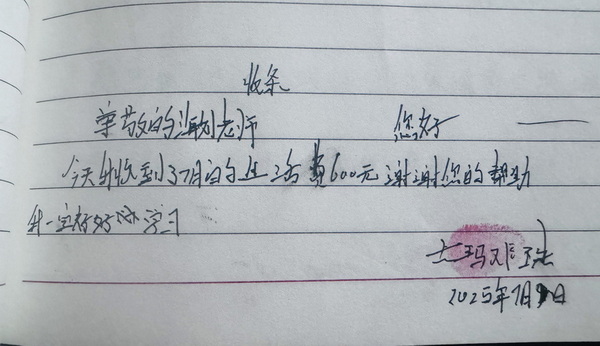 收条
尊敬的 老师 您好
今天我收到了7月的生活费600元谢谢您的帮助
我一定好好的学习
玛
2025年7月 日